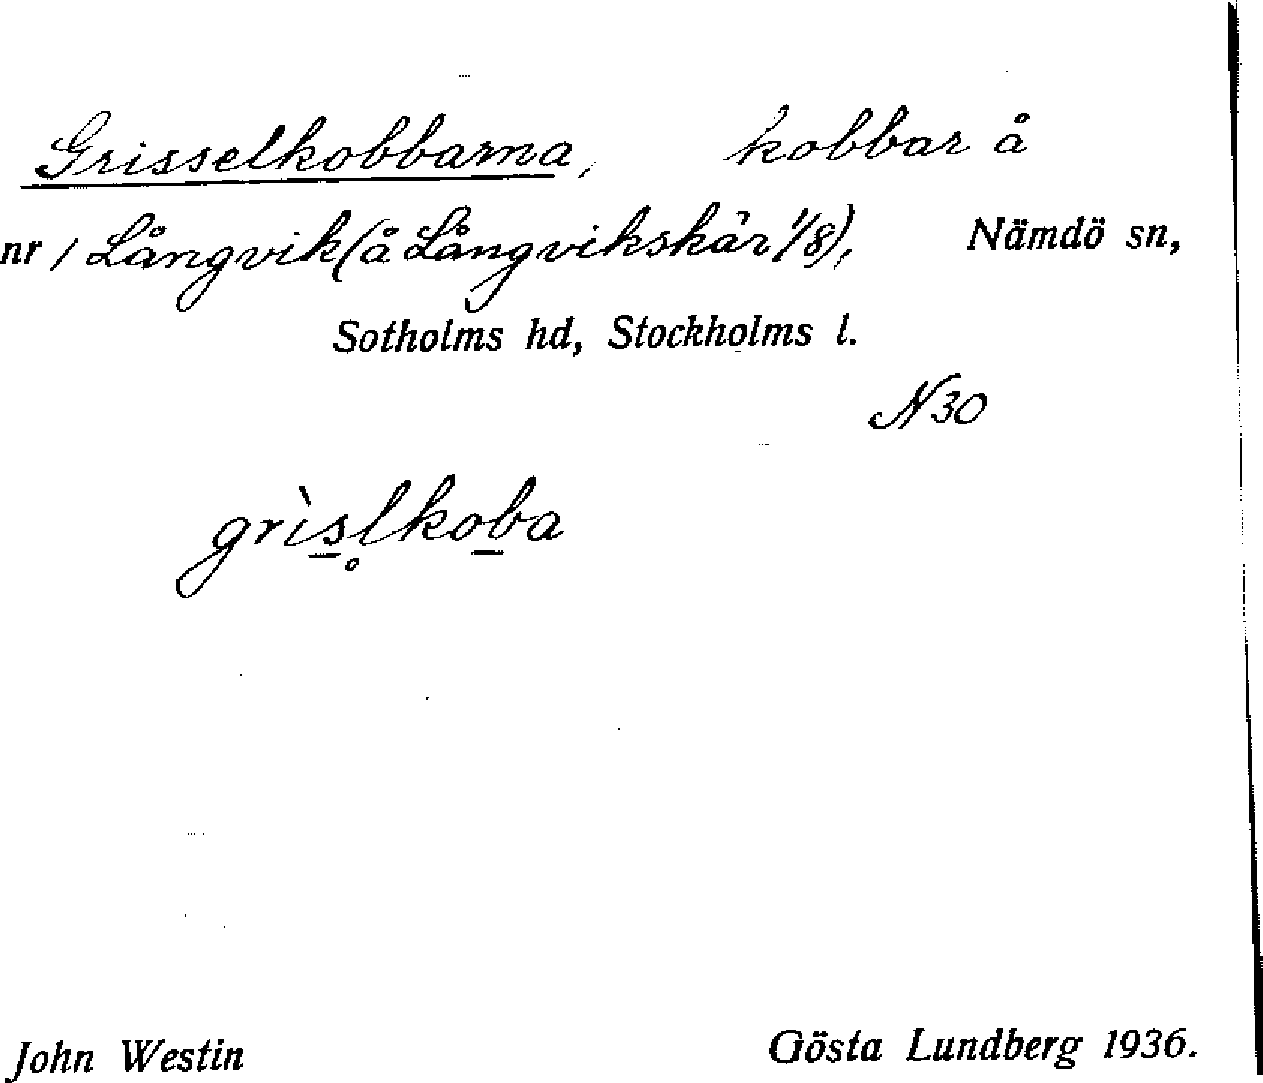 Grisselkobbarna, kobbar å
nr 1 Långvik (å Långvikskär 1/8), Nämdö sn,
Sotholms hd, Stockholms l.
N30
grìs̲l̥kob̲a
John Westin Gösta Lundberg 1936.